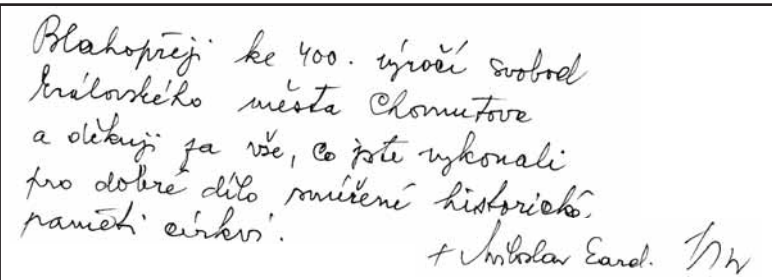 Blahopřeji ke 400. výročí svobod
královského města Chomutova
a děkuji za vše, co jste vykonali
pro dobré dílo smíření historické
paměti církví.
+ Miloslav Card.